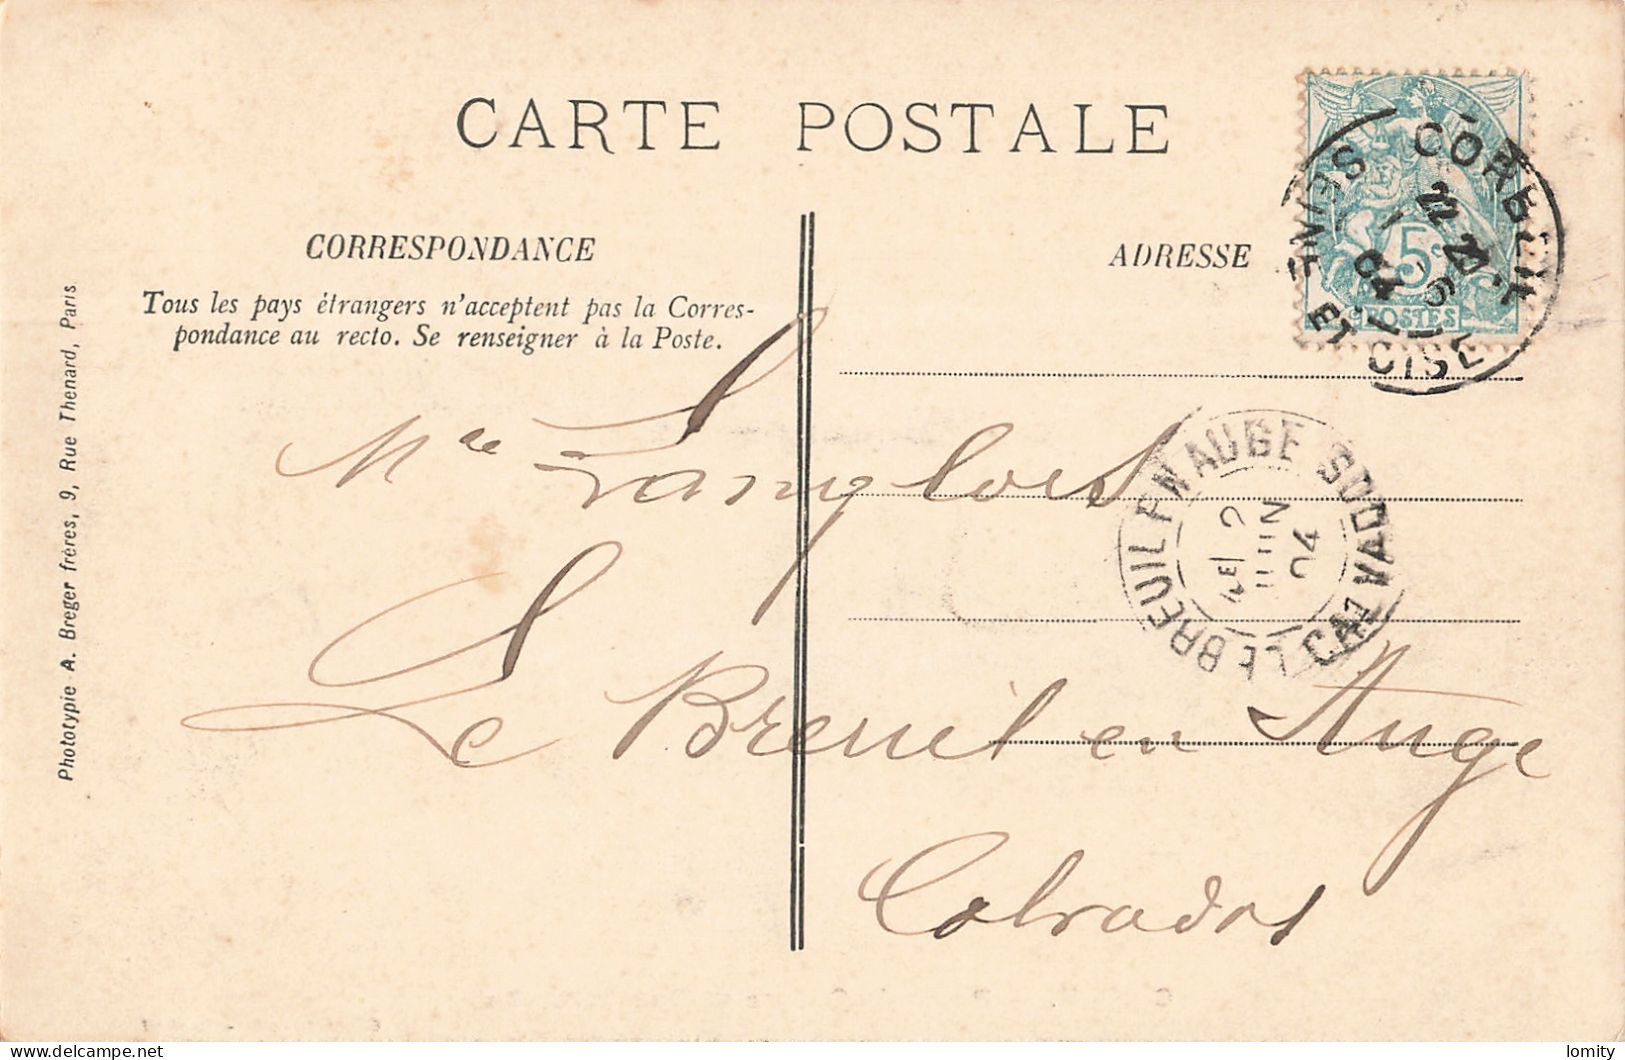 CARTE POSTALE
CORRESPONDANCE
Tous les pays étrangers n'acceptent pas la Corres-
pondance au recto. Se renseigner à la Poste.
ADRESSE
5c
POSTES
CORBEIL
SEINE ET OISE
LE BREUIL EN AUGE
CALVADOS
2
JUIN
04
Mlle Langlois
Le Breuil en Auge
Calvados
Phototypie A. Breger frères, 9, Rue Thenard, Paris
delcampe.net
lomity